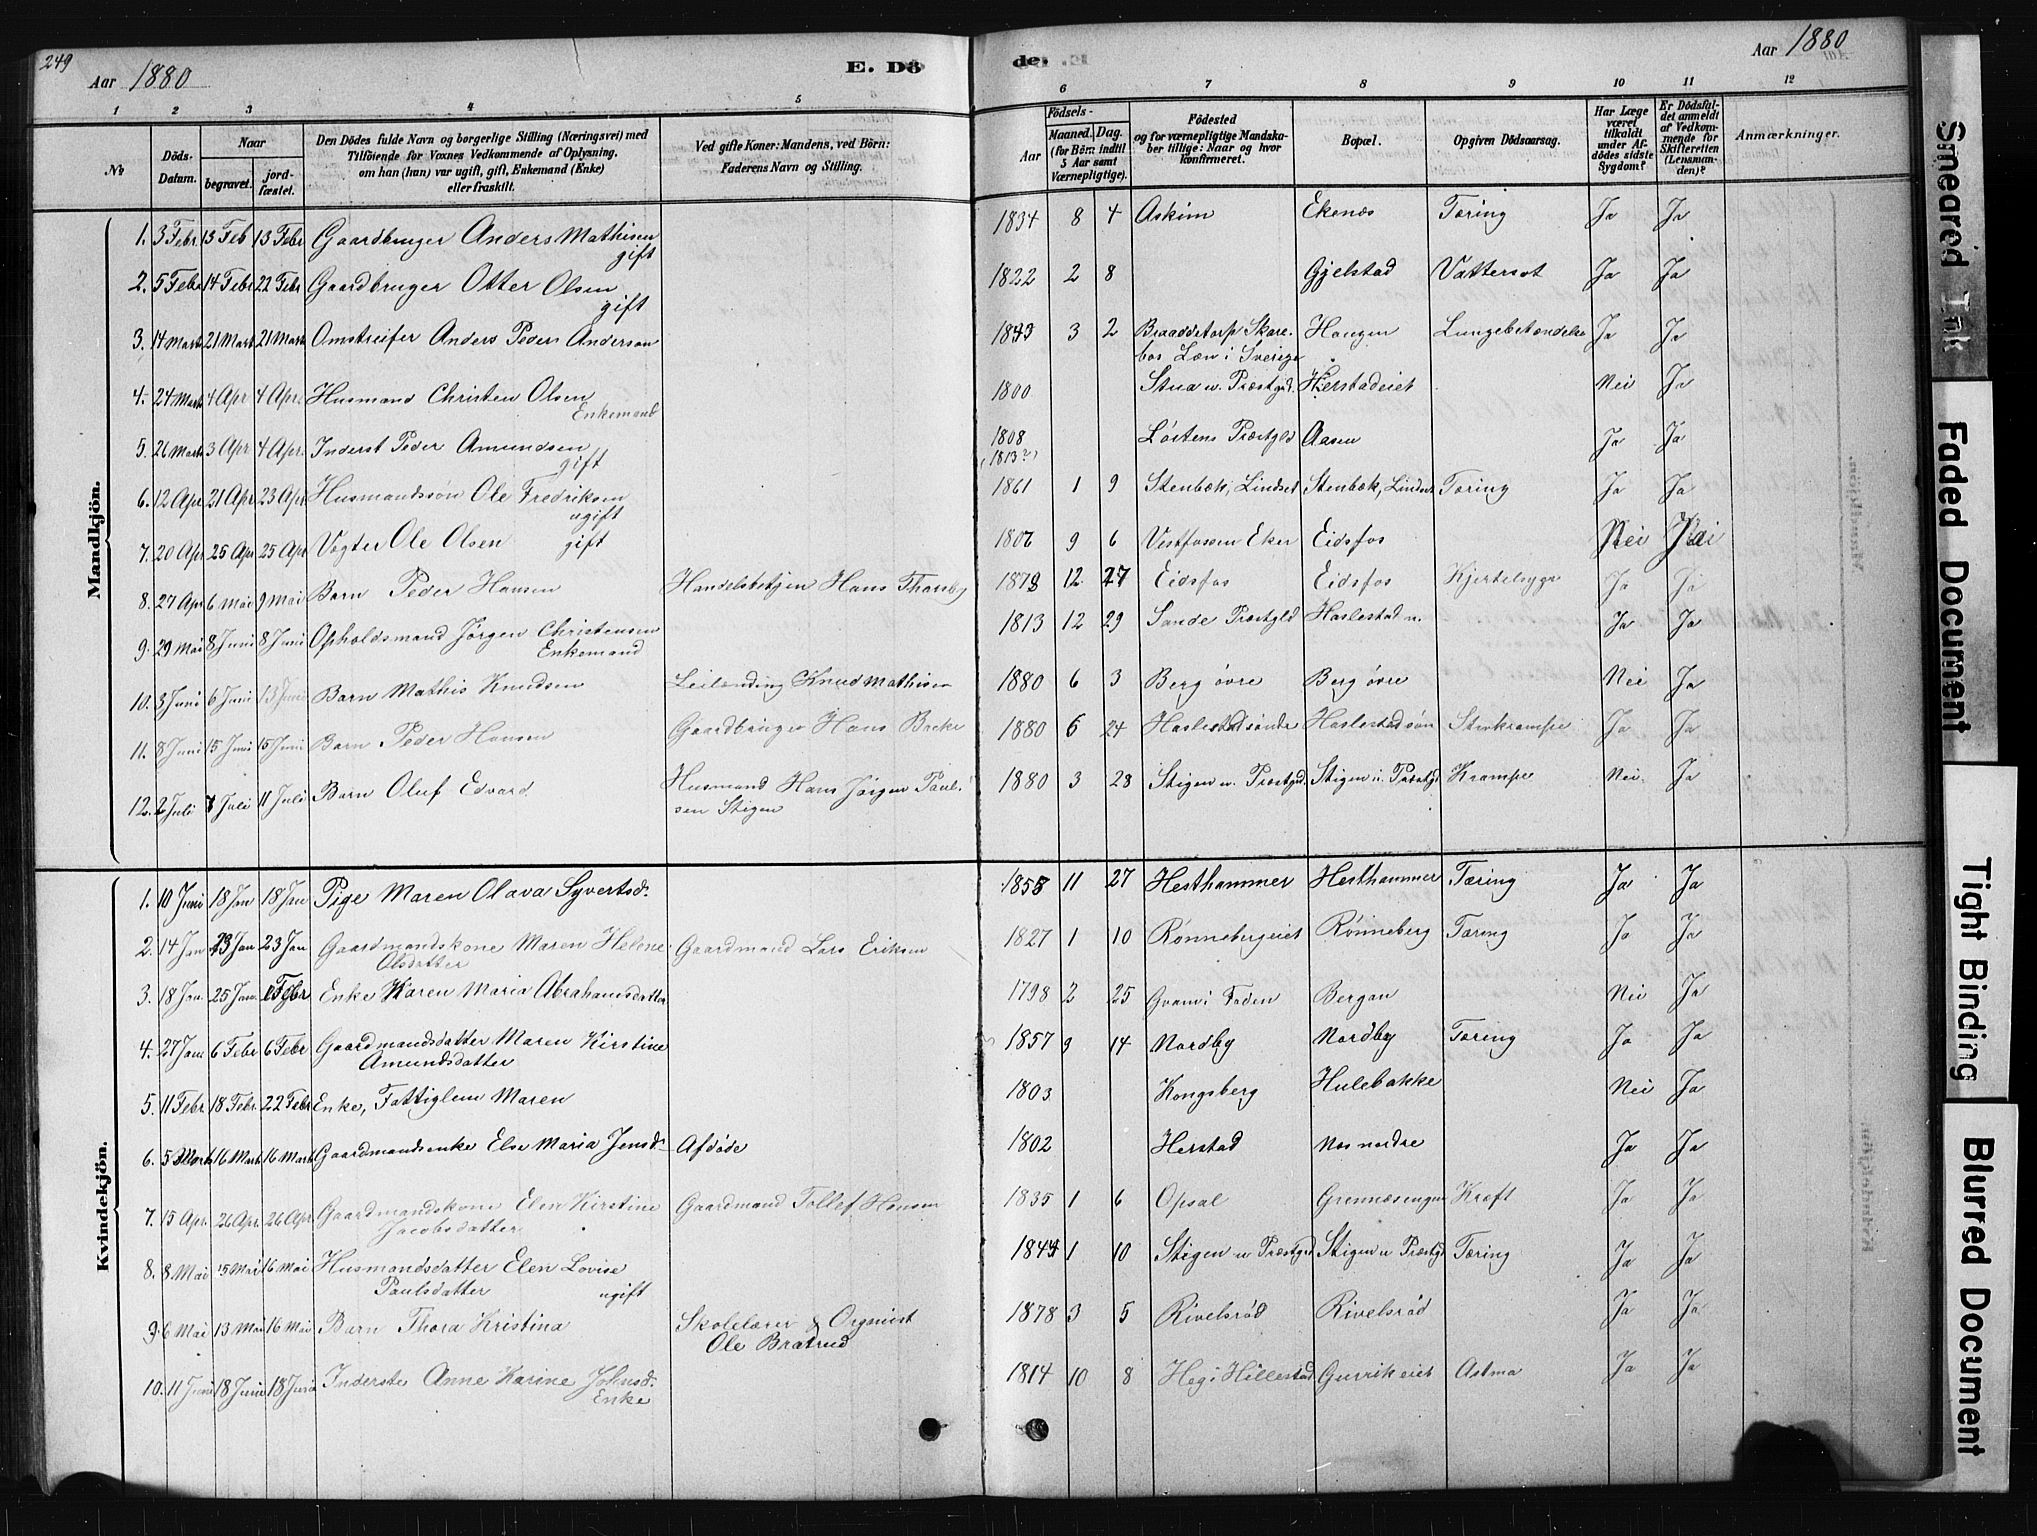 249
Aar 1880
E. Dö
de.
Aar 1880
1 2 3 4 5 6 7 8 9 10 11 12
No
Döds-Datum.
Naar
begravet.
jord-fæstet.
Den Dödes fulde Navn og borgerlige Stilling (Næringsvei) med
Tilföiende for Voxnes Vedkommende af Oplysning.
om han (hun) var ugift, gift, Enkemand (Enke)
eller fraskilt.
Ved gifte Koner: Mandens, ved Börn:
Faderens Navn og Stilling.
Födsels-
Aar
Maaned. Dag.
(for Börn indtil
5 Aar samt
Værnepligtige).
Födested
og for værnepligtige Mandska-
ber tillige: Naar og hvor
konfirmeret.
Bopæl.
Opgiven Dödsaarsag.
Har Læge
været
tilkaldt
under Af-
dödes sidste
Sygdom?
Er Dödsfal-
det anmeldt
af Vedkom-
mende for
Skifteretten
(Lensman-
den)?
Anmærkninger.
Mandkjön.
1. 3 Febr 13 Feb 13 Febr Gaardbruger Anders Mathisen gift 1834 8 4 Askim Ekenæs Tæring Ja Ja
2. 5 Febr 14 Febr 22 Febr Gaardbruger Otter Olsen gift 1822 2 8 Gjelstad Vattersot Ja Ja
3. 14 Marts 21 Mart 21 Mart Omstreifer Anders Peders Anderson 3 2 Braaddetorp Skare-
bos Læn i Sverige Haugen Lungebetændelse Ja Ja
4. 24 Marts 4 Apr 4 Apr. Husmand Christen Olsen Enkemand 1800 Stua u. Præstgd. Hierstadeiet Nei Ja
5. 26 Marts 3 Apr 4 Apr. Inderst Peder Amundsen gift 1808 (1813?) Løitens Præstgld Aasen Ja Ja
6. 12 Apr 21 Apr 23 Apr Husmandssøn Ole Fredriksen ugift 1861 1 9 Stenbæk, Lindset Stenbæk, Lindset Tæring Ja Ja
7. 20 Apr 25 Apr 25 Apr Vogter Ole Olsen gift 9 6 Vestfossen Eker Eidsfos Nei
8. 27 Apr 6 Mai 9 Mai Barn Peder Hansen Handelsbetjen Hans Thorsby 1878 12 27 Eidsfos Eidsfos Kjertelsyge Ja Ja
9. 29 Mai 8 Juni 8 Juni Opholdsmand Jørgen Christensen Enkemand 1813 12 29 Sande Præstgld Haslestad n. Ja Ja
10. 3 Juni 6 Juni 13 Juni Barn Mathis Knudsen Leilænding Knud Mathisen 1880 6 3 Berg øvre Berg øvre Nei Ja
11. 8 Juni 15 Juni 15 Juni Barn Peder Hansen Gaardbruger Hans Bache 1880 6 24 Haslestadsøndre Haslestadsøn Ja Ja
12. 2 Juli 7 Juli 11 Juli Barn Oluf Edvard Husmand Hans Jørgen Paul-
sen Stigen 1880 3 28 Stigen u. Præstgd. Stigen u. Præstgd Krampe Nei Ja
Kvindekjön.
1. 10 18 Jan 18 Jan Pige Maren Olava Syvertsd. 1858 11 27 Hesthammer Hesthammer Tæring Ja Ja
2. 14 Jan 23 Jan 23 Jan Gaardmandskone Maren Helene
Olsdatter Gaardmand Lars Eriksen 1827 1 10 Rønnebergeiet Rønneberg Tæring Ja Ja
3. 18 Jan. 25 Jan. Febr Enke Karen Maria Abrahamsdatter 1798 2 25 Bergan Nei Ja
4. 27 Jan 6 Febr 6 Febr Gaardmandsdatter Maren Kirstine
Amundsdatter 1857 9 14 Nordby Nordby Tæring Ja Ja
5. 11 Febr 18 Febr 22 Febr Enke, Fattiglem Maren 1803 Kongsberg Hulebakke Nei Ja
6. 5 Marts 16 Mart 16 Mart Gaardmandsenke Else Maria Jensd. Afdøde 1802 Herstad Næs nordre Ja Ja
7. 15 Apr. 26 Apr. 26 Apr. Gaardmandskone Elen Kirstine
Jacobsdatter Gaardmand Tollef Hansen 1835 1 6 Opsal Grennæsengen Kræft Ja Ja
8. 8 Mai 15 Mai 16 Mai Husmandsdatter Elen Lovise
Paulsdatter ugift 1 10 Stigen u Præstgd Stigen u Præstgd Tæring Ja Ja
9. 6 Mai 13 Mai 16 Mai Barn Thora Kristina Skolelærer & Organist
Ole Bratrud 1878 3 5 Rivelsrød Rivelsrød Ja Ja
10. 11 Juni 18 Juni 18 Juni Inderste Anne Karine Johnsd.
Enke 1814 10 8 Hegi Hillestad Gurrikeiet Astma Ja Ja
Smeared Ink
Faded Document
Tight Binding
Blurred Document